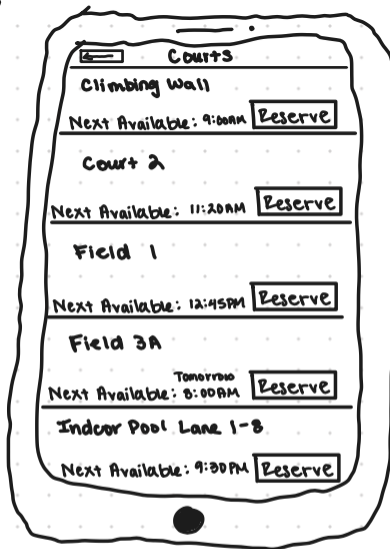 Courts
Climbing Wall
Next Available: 9:00AM Reserve
Court 2
Next Available: 11:20AM Reserve
Field 1
Next Available: 12:45PM Reserve
Field 3A
Tomorrow
Next Available: 8:00AM Reserve
Indoor Pool Lane 1-8
Next Available: 9:30PM Reserve